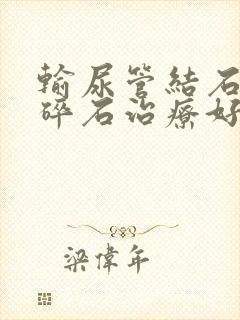 輸尿管結石
碎石治療好
梁偉年